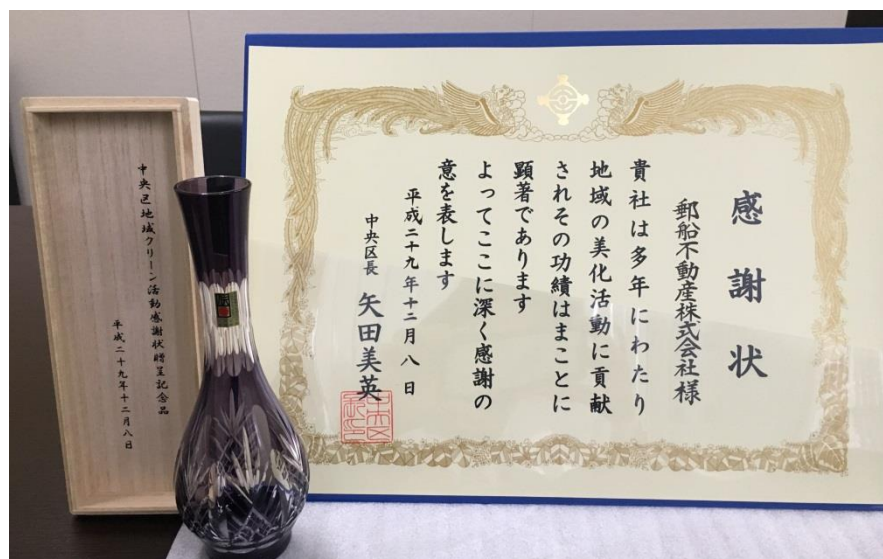 感謝状
郵船不動産株式会社様
貴社は多年にわたり
地域の美化活動に貢献
されその功績はまことに
顕著であります
よってここに深く感謝の
意を表します
平成二十九年十二月八日
中央区長 矢田美英
中央区地域クリーン活動感謝状贈呈記念品
平成二十九年十二月八日